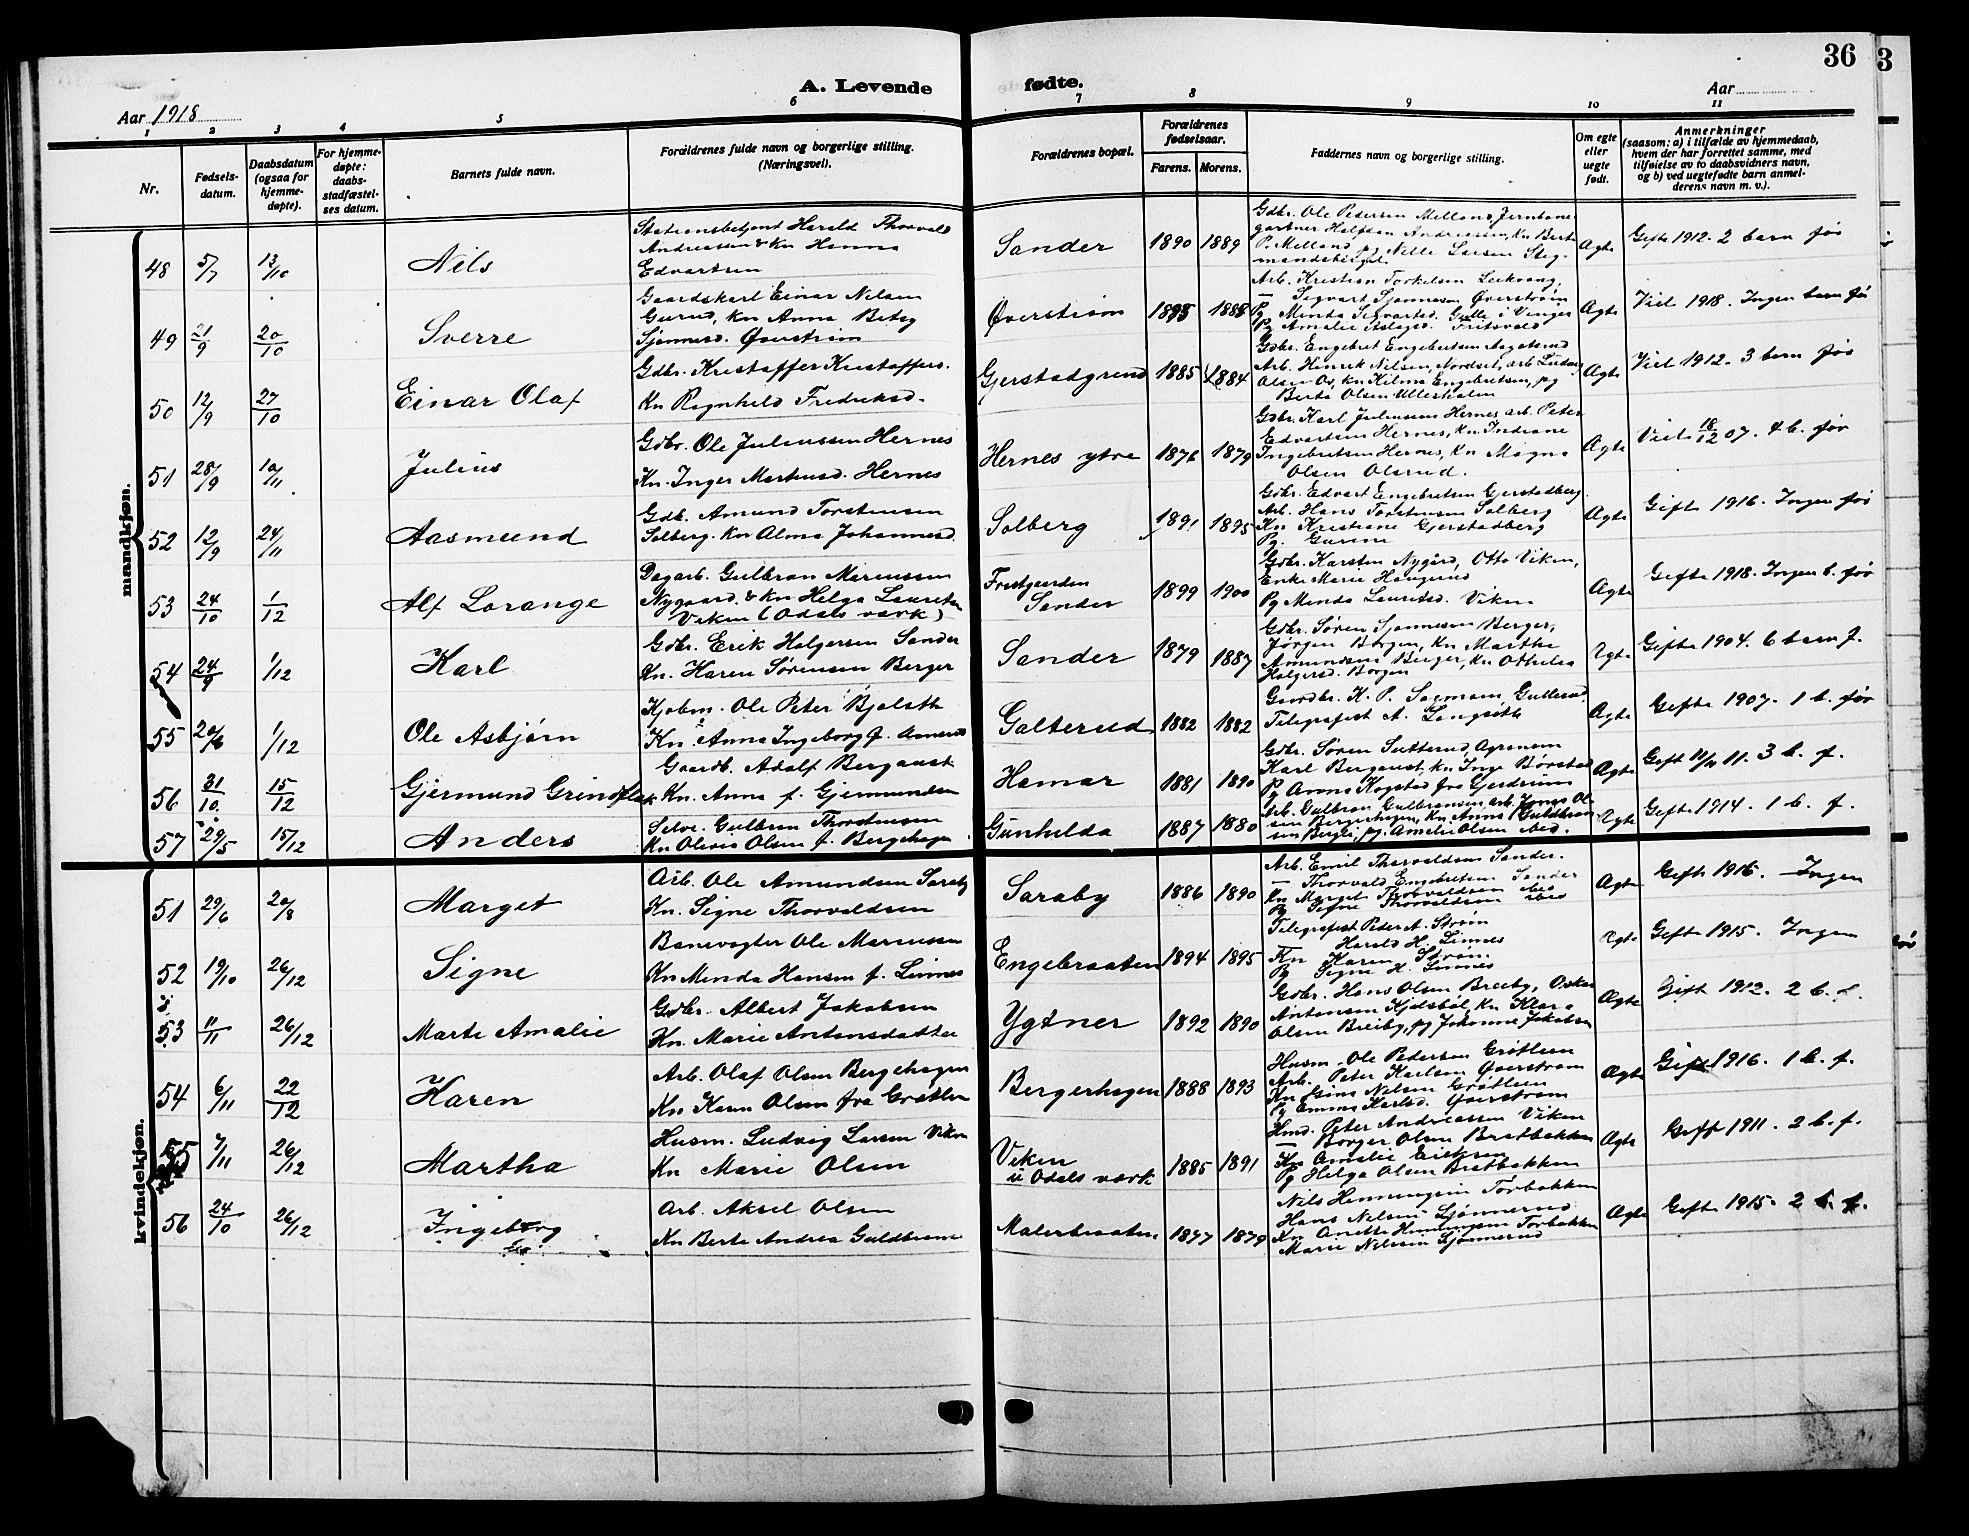 36
3
A. Levende
fødte.
Aar 1918
Aar
1 2 3 4 5 6 7 8 9 10 11
Nr.
Fødsels-
datum.
Daabsdatum
(ogsaa for
hjemme-
døpte).
For hjemme-
døpte:
daabs-
stadfæstel-
ses datum.
Barnets fulde navn.
Forældrenes fulde navn og borgerlige stilling.
(Næringsvei).
Forældrenes bopæl.
Forældrenes
fødselsaar.
Farens. Morens.
Faddernes navn og borgerlige stilling.
Om egte
eller
uegte
født.
Anmerkninger
(saasom: a) i tilfælde av hjemmedaab,
hvem der har forrettet samme, med
tilføielse av to daabsvidners navn,
og b) ved uegtefødte barn anmel-
derens navn m. v.).
mandkjøn.
48 5/7 13/10 Nils
Stationsbetjent Harald Thorvald
Andreassen & Kn Hanna
Edvartsen
Sander 1890 1889
Gdbr. Ole Pedersen Melland, Jernbane-
gartner Halfdan Andreassen, Kn Berte
P. Melland pg Nille Larsen Steg-
mandsberget
Ægte Gifte 1912. 2 barn før
49 21/9 20/10 Sverre
Gaardskarl Einar Nilsen
Gurud, Kn Anna Betsy
Sjønnesd. Øverstrøm
Øverstrøm 1898 1888
Arb. Kristian Torkelsen Lekvang
— Sigvart Sjønnesen Øverstrøm
Pg Minda Sigvartsd. Gulle i Vinger
Pg Amalie Aslagsd. Fritsvold
Ægte Viet 1918. Ingen barn før
50 12/9 27/10 Einar Olaf
Gdbr. Kristoffer Kristoffers.
Kn Ragnhild Fredriksd.
Gjerstadgrend 1885 1884
Gdbr. Engebret Engebretsen
Arb. Henrik Nilsen, Nordset, arb Ludvig
Olsen Os, Kn Hilma Engebretsen, pg
Berta Olsen Ullestalen
Ægte Viet 1912. 3 barn før
51 28/9 10/11 Julius
Gdbr. Ole Juliussen Hernes
Kn. Inger Martinsd. Hernes
Hernes ytre 1876 1879
Gdbr. Karl Juliussen Hernes, arb. Peter
Edvartsen Hernes, Kn. Indiane
Ingebretsen Hernes, Kn Magna
Olsen Olsrud.
Ægte Viet 18/12 07. 4 b. før
52 12/9 24/11 Aasmund
Gdb. Amund Torstensen
Solberg. Kn Alma Johannesd.
Solberg 1891 1895
Gdbr. Edvart Engebretsen Gjerstadberg
Arb. Hans Torstensen Solberg
Kn Kristiane Gjerstadberg
Pg. Gurine
Ægte Gifte 1916. Ingen før
53 24/10 1/12 Alf Lorange
Dagarb. Gulbran Mariussen
Nygaard. & Kn Helga Lauritsen
Viken (Odals værk)
Sander 1899 1900
Gdbr. Karsten Nygård, Otto Viken,
Enke Marie Haugerud
Pg Minda Lauritsd. Viken
Ægte Gifte 1918. Ingen b. før
54 24/9 1/12 Karl
Gdbr. Erik Holgersen Sander
Kn. Karen Sørensen Berger
Sander 1879 1887
Gdbr. Søren Sjønnesen Berger,
Jørgen Borgen, Kn Marthe
Amundsen Berger, Kn Othilia
Holgersd. Borgen
Ægte Gifte 1904. 6 barn f.
55 20/6 1/12 Ole Asbjørn
Kjøbm. Ole Peter Bjølseth
Kn. Anna Ingeborg f. Amerud
Galterud 1882 1882
Gaardbr. K. P. Gullerud,
Telegrafist A. Langseth
Ægte Gifte 1907. 1 b. før
56 31/10 15/12 Gjermund Grindflek
Gaardb. Adolf Bergaust
Kn. Anna f. Gjermundsen
Hamar 1881 1890
Gdbr. Søren Sutterud, Agronom
Karl Bergaust, Kn. Inga Børstad
Pg Anna Kogstad fra Gjerdrum
Ægte Gift 11. 3 b. f.
57 29/5 15/12 Anders
Selve. Gulbran Thordmosen
Kn Olivia Olsen f. Bergehagen
Gunhilda 1887 1880
Arb. Gulbran Gulbransen, arb. Jonas Ol-
sen Bergerhagen, Kn Anna Guldbran-
sen Bergli, pg. Amelie Olsen ibid.
Ægte Gifte 1914. 1 b. f.
kvindekjøn.
51 29/6 20/8 Marget
Arb. Ole Amundsen Saraby
Kn. Signe Thorvaldsen
Saraby 1886 1890
Arb. Emil Thorvaldsen Sander.
— Thorvald Engebretsen Sander
Kn Marget Thorvaldsen ibid
Pg Signe Thorvaldsen ibid
Ægte Gift 1916. Ingen
52 19/10 26/12 Signe
Banevogter Ole Mariussen
Kn Minda Hansen f. Linnes
Engebraaten 1894 1895
Telegrafist Peder A. Strøm
Harald H. Linnes
Kn Karen Strøm
Pg Signe H. Linnes
Ægte Gifte 1915. Ingen
53 11/11 26/12 Marte Amalie
Gdbr. Albert Jakobsen
Kn. Marie Antonsdatter
Ygtner 1892 1890
Gdbr. Hans Olsen Breiby, Oskar
Antonsen Kjelsbøl, Kn Klara
Olsen Breiby, pg Johanne Jakobsen
Ægte Gift 1912. 2 b. f.
54 6/11 22/12 Karen
Arb. Olaf Olsen Bergehagen
Kn Karen Olsen fra Grøtlien
Bergerhagen 1888 1893
Husm. Ole Pedersen Grøtlien
Arb. Peter Karlsen Øverstrøm
Kn Gina Nilsen Grøtlien
Pg Emma Karlsd. Øverstrøm
Ægte Gift 1916. 1 b. f.
55 7/11 26/12 Martha
Husm. Ludvig Larsen Viken
Kn Marie Olsen
Viken
i Odals værk 1885 1891
Hmd. Peter Andreassen Viken
— Borger Olsen Bratbakken
Kn Amalie Eriksen
Pg Helga Olsen Bratbakken
Ægte Gift 1911. 2 b. f.
56 24/10 26/12 Ingeborg
Arb. Aksel Olsen
Kn Berte Andrea Guldbransen
Malerbraaten 1877 1879
Nils Henningsen Torbakken
Hans Nilsen Sjønnerud
Kn Anette Henningsen Torbakken
Marie Nilsen Sjønnerud
Ægte Gifte 1915. 2 b. f.